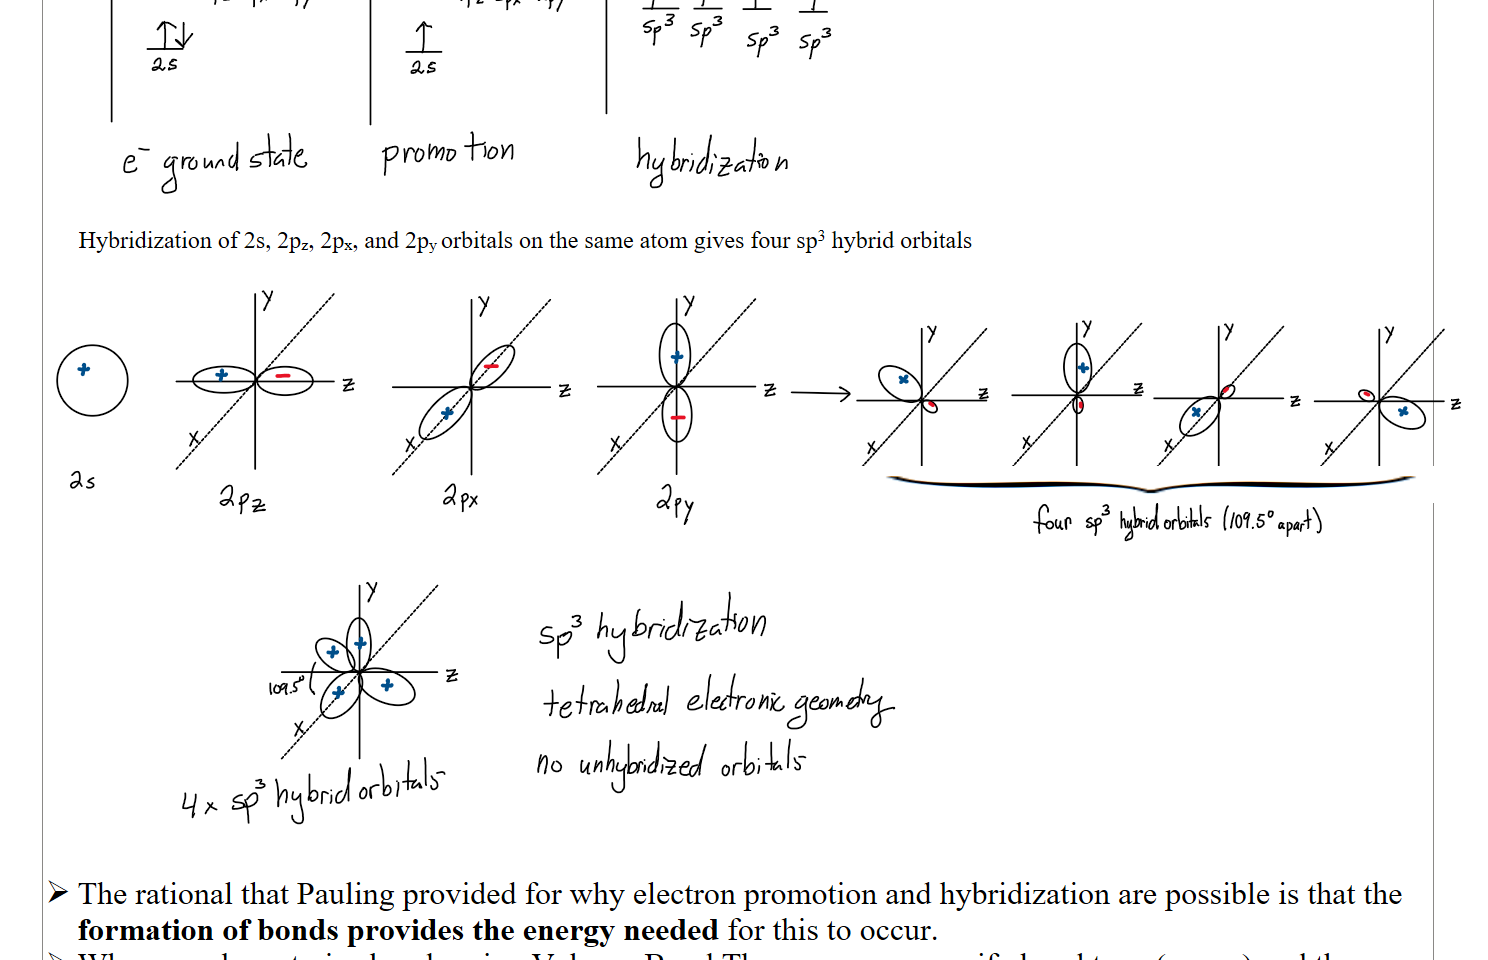 2s
2s
sp³ sp³ sp³ sp³
e⁻ ground state
promotion
hybridization
Hybridization of 2s, 2pz, 2px, and 2py orbitals on the same atom gives four sp³ hybrid orbitals
+ 2s
y + − z x 2pz
y − z + x 2px
y + z − x 2py
y + − z x
y + z x
y z + x
y z + x
four sp³ hybrid orbitals (109.5° apart)
y + + z 109.5° + + x
4x sp³ hybrid orbitals
sp³ hybridization
tetrahedral electronic geometry
no unhybridized orbitals
➤ The rational that Pauling provided for why electron promotion and hybridization are possible is that the
formation of bonds provides the energy needed for this to occur.